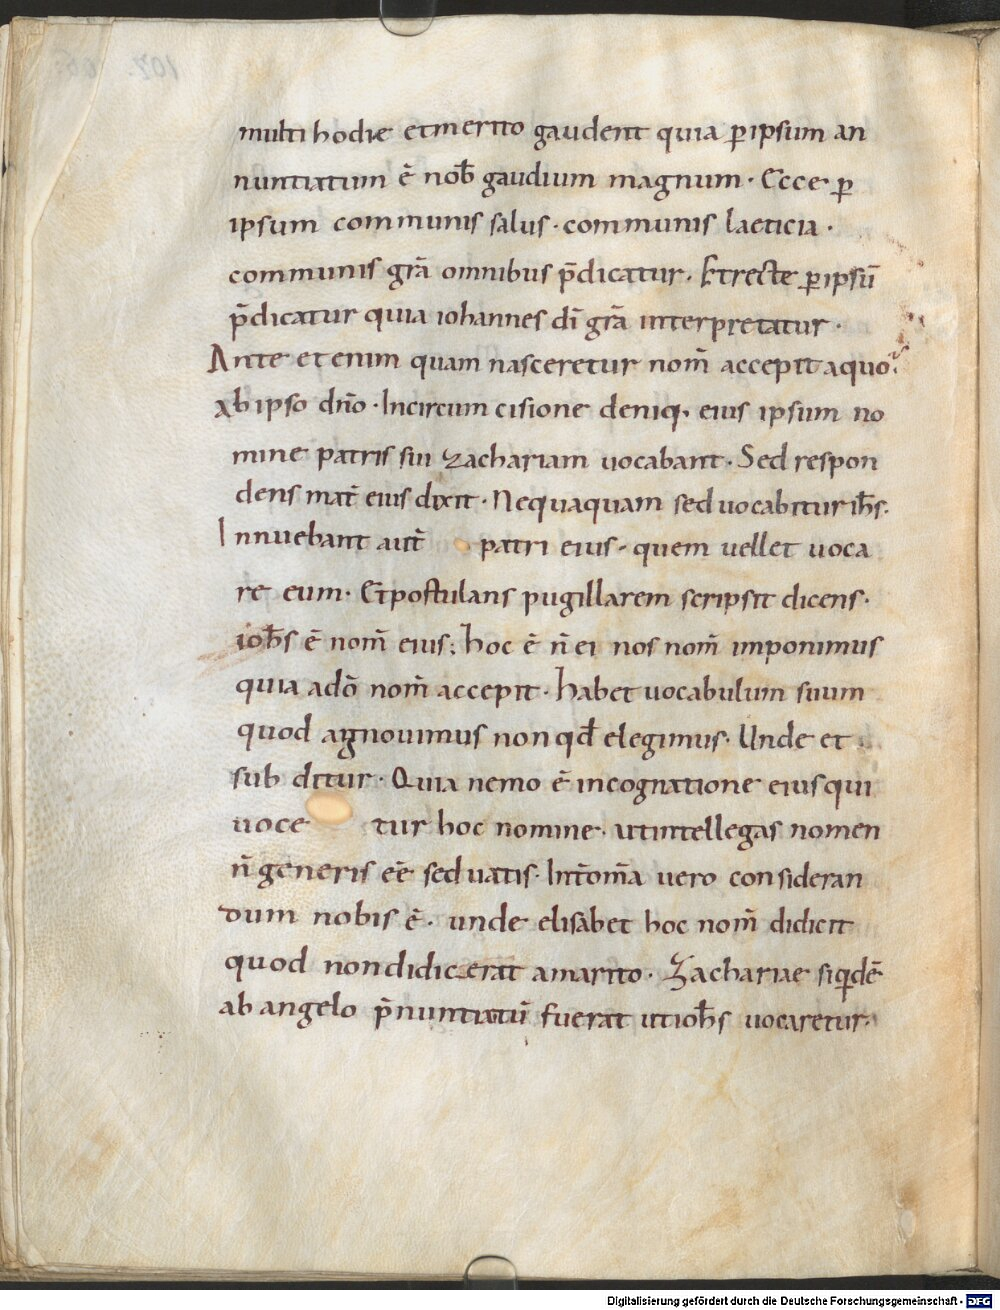 multi hodie et merito gaudent quia ꝑ ipsum an
nuntiatum ē nob̄ gaudium magnum · Ecce ꝑ
ipsum communis salus · communis laeticia ·
communis gr̄a omnibus p̄dicatur · Et recte ꝑ ipsū
p̄dicatur quia iohannes dī gr̄a interpretatur ·
Ante et enim quam nasceretur nom̄ accepit a quo?
ab ipso dn̄o · In circumcisione deniq, eius ipsum no
mine patris sui zachariam uocabant · Sed respon
dens mat̄ eius dixit · Nequaquam sed uocabitur ioh̄s ·
Innuebant aut̄ patri eius · quem uellet uoca
re eum · Et postulans pugillarem scripsit dicens ·
ioh̄s ē nom̄ eius; hoc ē n̄ ei nos nom̄ imponimus
quia a dō nom̄ accepit · habet uocabulum suum
quod agnouimus non qd̄ elegimus · Unde et
subditur · Quia nemo ē in cognatione eius qui
uocetur hoc nomine · ut intellegas nomen
n̄ generis eē sed uatis · Int̄ om̄a uero consideran
dum nobis ē · unde elisabet hoc nom̄ didicit
quod non didicerat a marito · Zachariae siquidē
ab angelo p̄nuntiatū fuerat ut ioh̄s uocaretur ·
Digitalisierung gefördert durch die Deutsche Forschungsgemeinschaft - DFG